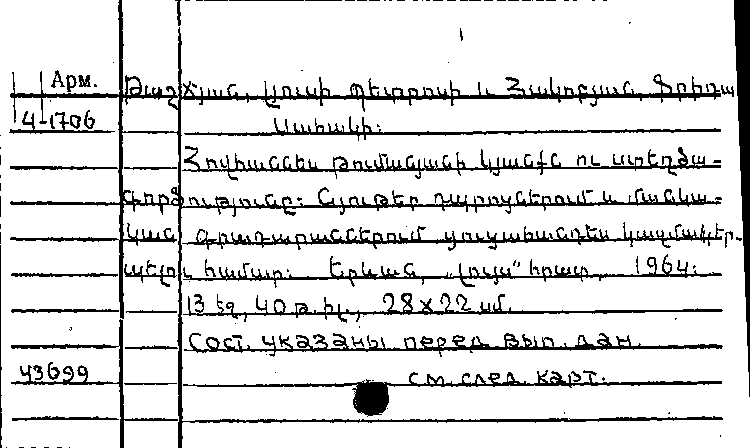 Арм.
4-1706
Թաշչյան, Լյուսի Պետրոսի և Հակոբյան, Ֆրիդա
Սարսակի:
Հովհաննես Թումանյանի կյանքն ու ստեղծա-
գործությունը: Նյութեր դպրոցներում և մանկա-
կան գրադարաններում ցուցահանդես կազմակեր-
պելու համար: Երևան, „Լույս" հրատ., 1964:
13 էջ, 40 թ. իլ., 28×22 սմ.
Сост. указаны перед вып. дан.
43699
см. след. карт.